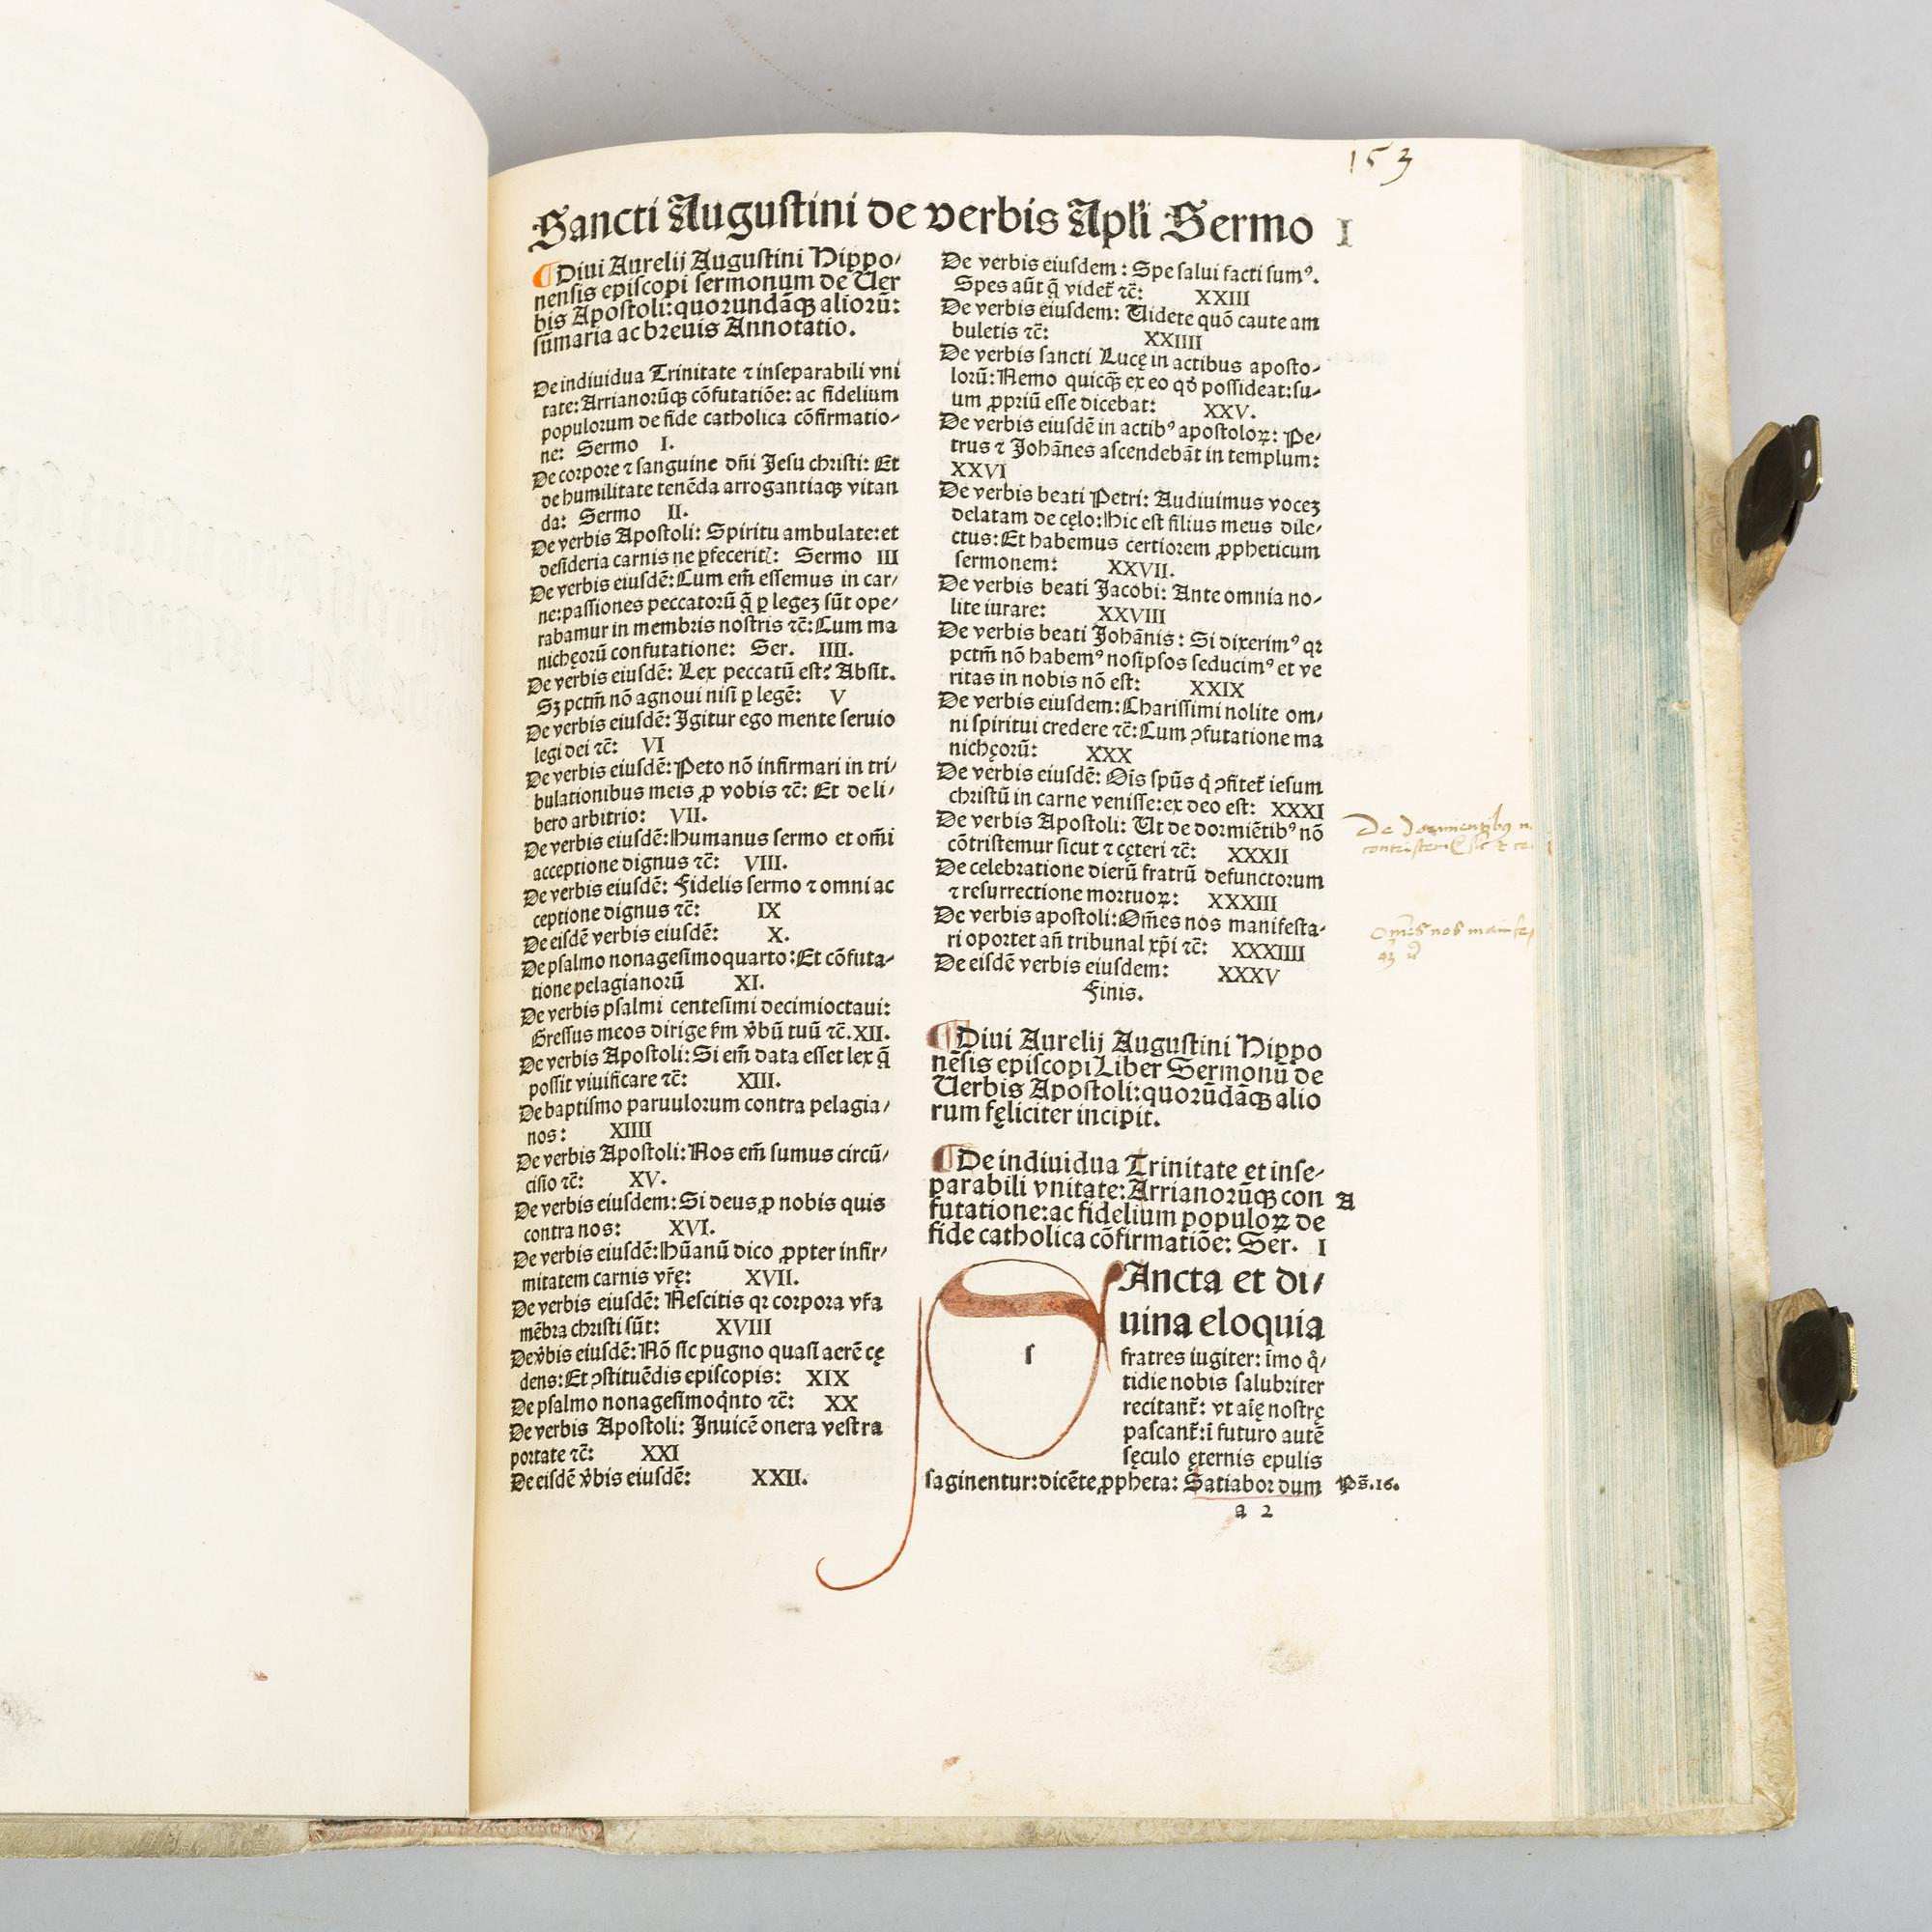 153
Sancti Augustini de verbis Apli Sermo I
Diui Aurelij Augustini Hippo⸗
nensis episcopi sermonum de Uer
bis Apostoli: quorundāqꝫ aliorū:
sūmaria ac breuis Annotatio.
De indiuidua Trinitate ⁊ inseparabili vni
tate: Arrianorūqꝫ cōfutatiōe: ac fidelium
populorum de fide catholica cōfirmatio⸗
ne: Sermo I.
De corpore ⁊ sanguine dn̄i Jesu christi: Et
de humilitate tenēda arrogantiaqꝫ vitan
da: Sermo II.
De verbis Apostoli: Spiritu ambulate: et
desideria carnis ne ꝑfecerit̄: Sermo III
De verbis eiusdē: Cum em̄ essemus in car⸗
ne: passiones peccatorū q̄ ꝑ legeꝫ sūt ope⸗
rabamur in membris nostris ⁊c̄: Cum ma
nichęorū confutatione: Ser. IIII.
De verbis eiusdē: Lex peccatū est? Absit.
Sꝫ pctm̄ nō agnoui nisi ꝑ legē: V
De verbis eiusdē: Igitur ego mente seruio
legi dei ⁊c̄: VI
De verbis eiusdē: Peto nō infirmari in tri⸗
bulationibus meis ꝓ vobis ⁊c̄: Et de li⸗
bero arbitrio: VII.
De verbis eiusdē: Humanus sermo et om̄i
acceptione dignus ⁊c̄: VIII.
De verbis eiusdē: Fidelis sermo ⁊ omni ac
ceptione dignus ⁊c̄: IX
De eisdē verbis eiusdē: X.
De psalmo nonagesimoquarto: Et cōfuta⸗
tione pelagianorū XI.
De verbis psalmi centesimi decimioctaui:
Gressus meos dirige s̄m v̄bū tuū ⁊c̄. XII.
De verbis Apostoli: Si em̄ data esset lex q̄
possit viuificare ⁊c̄: XIII.
De baptismo paruulorum contra pelagia⸗
nos: XIIII
De verbis Apostoli: Nos em̄ sumus circū⸗
cisio ⁊c̄: XV.
De verbis eiusdem: Si deus ꝓ nobis quis
contra nos: XVI.
De verbis eiusdē: Hūanū dico ꝓpter infir⸗
mitatem carnis vr̄ę: XVII.
De verbis eiusdē: Nescitis qꝛ corpora vr̄a
mēbra christi sūt: XVIII
De v̄bis eiusdē: Nō sic pugno quasi aerē cę
dens: Et ꝯstituēdis episcopis: XIX
De psalmo nonagesimoq̇nto ⁊c̄: XX
De verbis Apostoli: Inuicē onera vestra
portate ⁊c̄: XXI
De eisdē v̄bis eiusdē: XXII.
De verbis eiusdem: Spe salui facti sumꝰ.
Spes aūt q̄ videt̄ ⁊c̄: XXIII
De verbis eiusdem: Uidete quō caute am
buletis ⁊c̄: XXIIII
De verbis sancti Lucę in actibus aposto⸗
lorū: Nemo quicqꝫ ex eo qď possideat: su⸗
um ꝓpriū esse dicebat: XXV.
De verbis eiusdē in actibꝰ apostoloꝝ: Pe⸗
trus ⁊ Johānes ascendebāt in templum:
XXVI
De verbis beati Petri: Audiuimus voceꝫ
delatam de cęlo: Hic est filius meus dile⸗
ctus: Et habemus certiorem ꝓpheticum
sermonem: XXVII.
De verbis beati Jacobi: Ante omnia no⸗
lite iurare: XXVIII
De verbis beati Johānis: Si dixerimꝰ qꝛ
pctm̄ nō habemꝰ nosipsos seducimꝰ et ve
ritas in nobis nō est: XXIX
De verbis eiusdem: Charissimi nolite om⸗
ni spiritui credere ⁊c̄: Cum ꝯfutatione ma
nichęorū: XXX
De verbis eiusdē: Oīs spūs q̇ ꝯfitet̄ iesum
christū in carne venisse: ex deo est: XXXI
De verbis Apostoli: Ut de dormiētibꝰ nō
cōtristemur sicut ⁊ cęteri ⁊c̄: XXXII
De celebratione dierū fratrū defunctorum
⁊ resurrectione mortuoꝝ: XXXIII
De verbis apostoli: Om̄es nos manifesta⸗
ri oportet añ tribunal xp̄i ⁊c̄: XXXIIII
De eisdē verbis eiusdem: XXXV
Finis.
Diui Aurelij Augustini Hippo
nēsis episcopi Liber Sermonū de
Uerbis Apostoli: quorūdāqꝫ alio
rum fęliciter incipit.
De indiuidua Trinitate et inse⸗
parabili vnitate: Arrianorūqꝫ con A
futatione: ac fidelium populoꝝ de
fide catholica cōfirmatiōe: Ser. I
s
Ancta et di⸗
uina eloquia
fratres iugiter: īmo q̇⸗
tidie nobis salubriter
recitant̄: vt aīę nostrę
pascant̄: ī futuro autē
sęculo ęternis epulis
saginentur: dicēte ꝓpheta: Satiabor dum Ps̄.16.
a 2
De dormientibꝰ
Om̄es nos